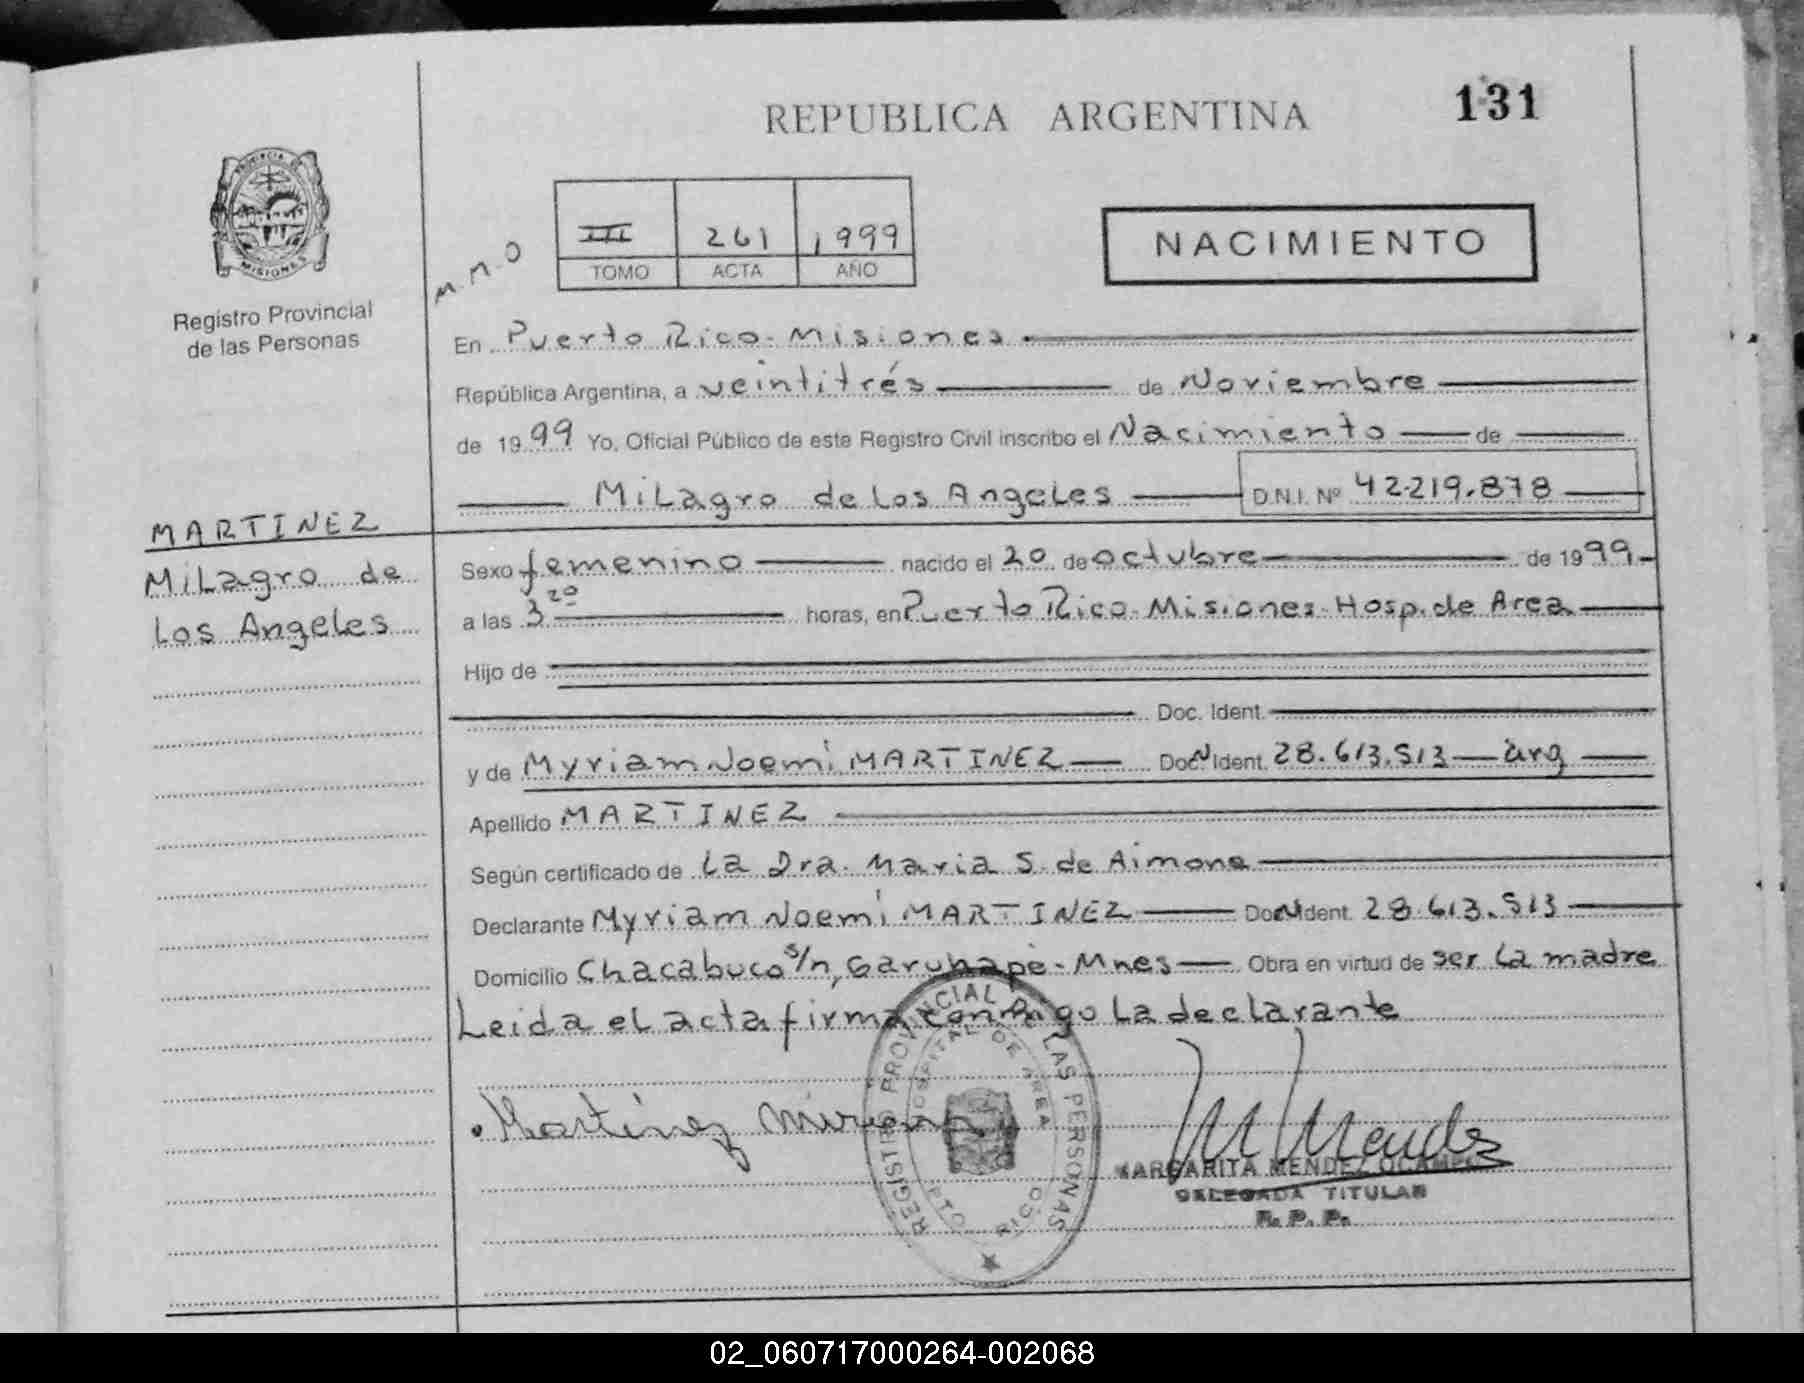 REPUBLICA ARGENTINA
131
PROVINCIA DE
MISIONES
Registro Provincial
de las Personas
M.M.O
III 261 1999
TOMO ACTA AÑO
NACIMIENTO
En Puerto Rico - Misiones
República Argentina, a veintitrés de Noviembre
de 1999 Yo, Oficial Público de este Registro Civil inscribo el Nacimiento de
Milagro de Los Angeles D.N.I. Nº 42.219.878
MARTINEZ
Milagro de
Los Angeles
Sexo femenino nacido el 20 de octubre de 1999
a las 3 20 horas, en Puerto Rico - Misiones - Hosp. de Area
Hijo de
Doc. Ident.
y de Myriam Noemí MARTINEZ Doc. N Ident. 28.613.513 — arg
Apellido MARTINEZ
Según certificado de La Dra. Maria S. de Aimone
Declarante Myriam Noemí MARTINEZ Doc. N Ident. 28.613.513
Domicilio Chacabuco s/n, Garuhapé - Mnes Obra en virtud de ser La madre
Leida el acta firma conmigo La declarante
REGISTRO PROVINCIAL DE LAS PERSONAS
HOSPITAL DE AREA
PTO RICO
Martinez
M Mendez
MARGARITA MENDEZ OCAMPO
DELEGADA TITULAR
R. P. P.
02_060717000264-002068